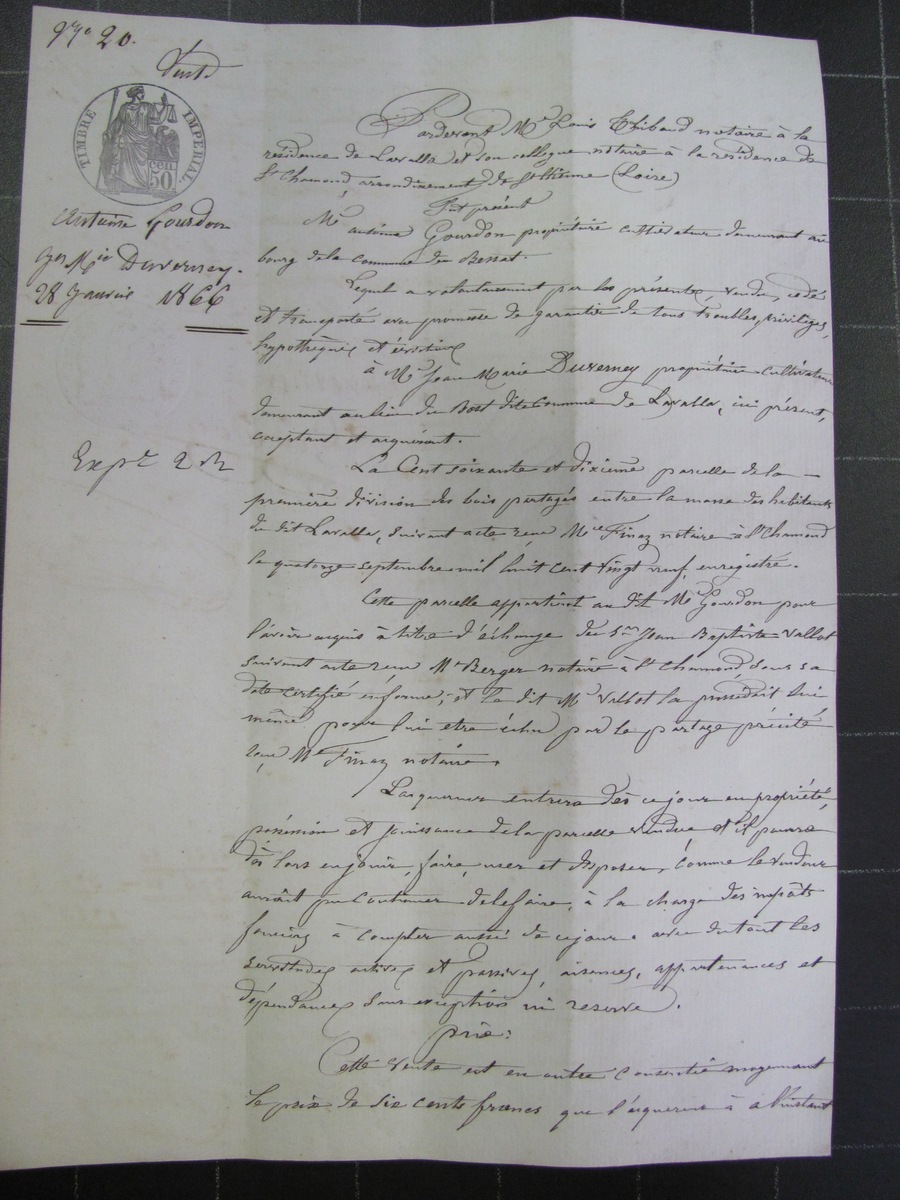 N° 20.
Vente
TIMBRE IMPERIAL
50 cen
Antoine Gourdon
Mie Duverney.
28 Janvier 1866
Expé 2
Pardevant Me Louis Thibaud notaire à la
résidence de Lavalla et son collègue notaire à la résidence de
St Chamond arrondissement de St Etienne (Loire)
Fut présent
Mr antoine Gourdon propriétaire cultivateur demeurant au
bourg de la commune du Bessat.
Lequel a volontairement par les présentes, vendu, cédé
et transporté avec promesse de garantie de tous troubles, privilèges,
hypothèques et évictions
à Mr Jean Marie Duverney propriétaire cultivateur
demeurant au lieu du Bost dite Commune de Lavalla, ici présent,
acceptant et acquérant.
La Cent soixante et dixième parcelle de la
première division des bois partagés entre la masse des habitants
du dit Lavalla, suivant acte reçu Me Finaz notaire à St Chamond
le quatorze septembre mil huit cent vingt neuf, enregistré.
Cette parcelle appartient au dit Mr Gourdon pour
l'avoir acquis à titre d'échange du Sr Jean Baptiste Vallot
suivant acte reçu Me Berger notaire à St Chamond sous sa
date certifié en forme; et le dit Mr Vallot la possédait lui
même pour lui etre échu par le partage précité
reçu Me Finaz notaire.
L'acquereur entrera dès ce jour en propriété,
possession et jouissance de la parcelle vendue et il pourra
dès lors en jouir, faire, user et disposer, comme le vendeur
aurait pu continuer de le faire, à la charge des impôts
fonciers à compter aussi de ce jour. avec du tout les
servitudes actives et passives, aisances, appartenances et
dépendances sans exception ni reserve.
prix:
Cette vente est en outre consentie moyennant
le prix de six cents francs que l'acquereur à à l'instant